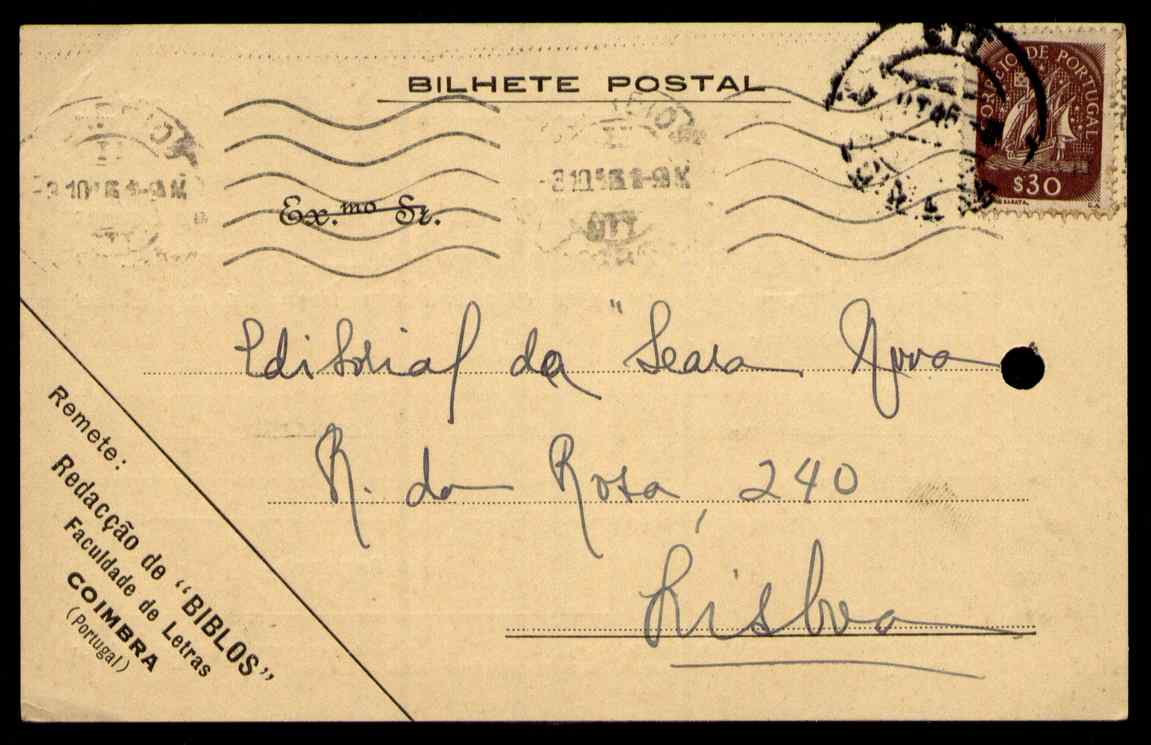 BILHETE POSTAL
CORREIO DE PORTUGAL
$30
CTT
Ex.mo Sr.
Editorial da "Seara Nova
R. da Rosa 240
Lisboa
Remete:
Redacção de "BIBLOS"
Faculdade de Letras
COIMBRA
(Portugal)